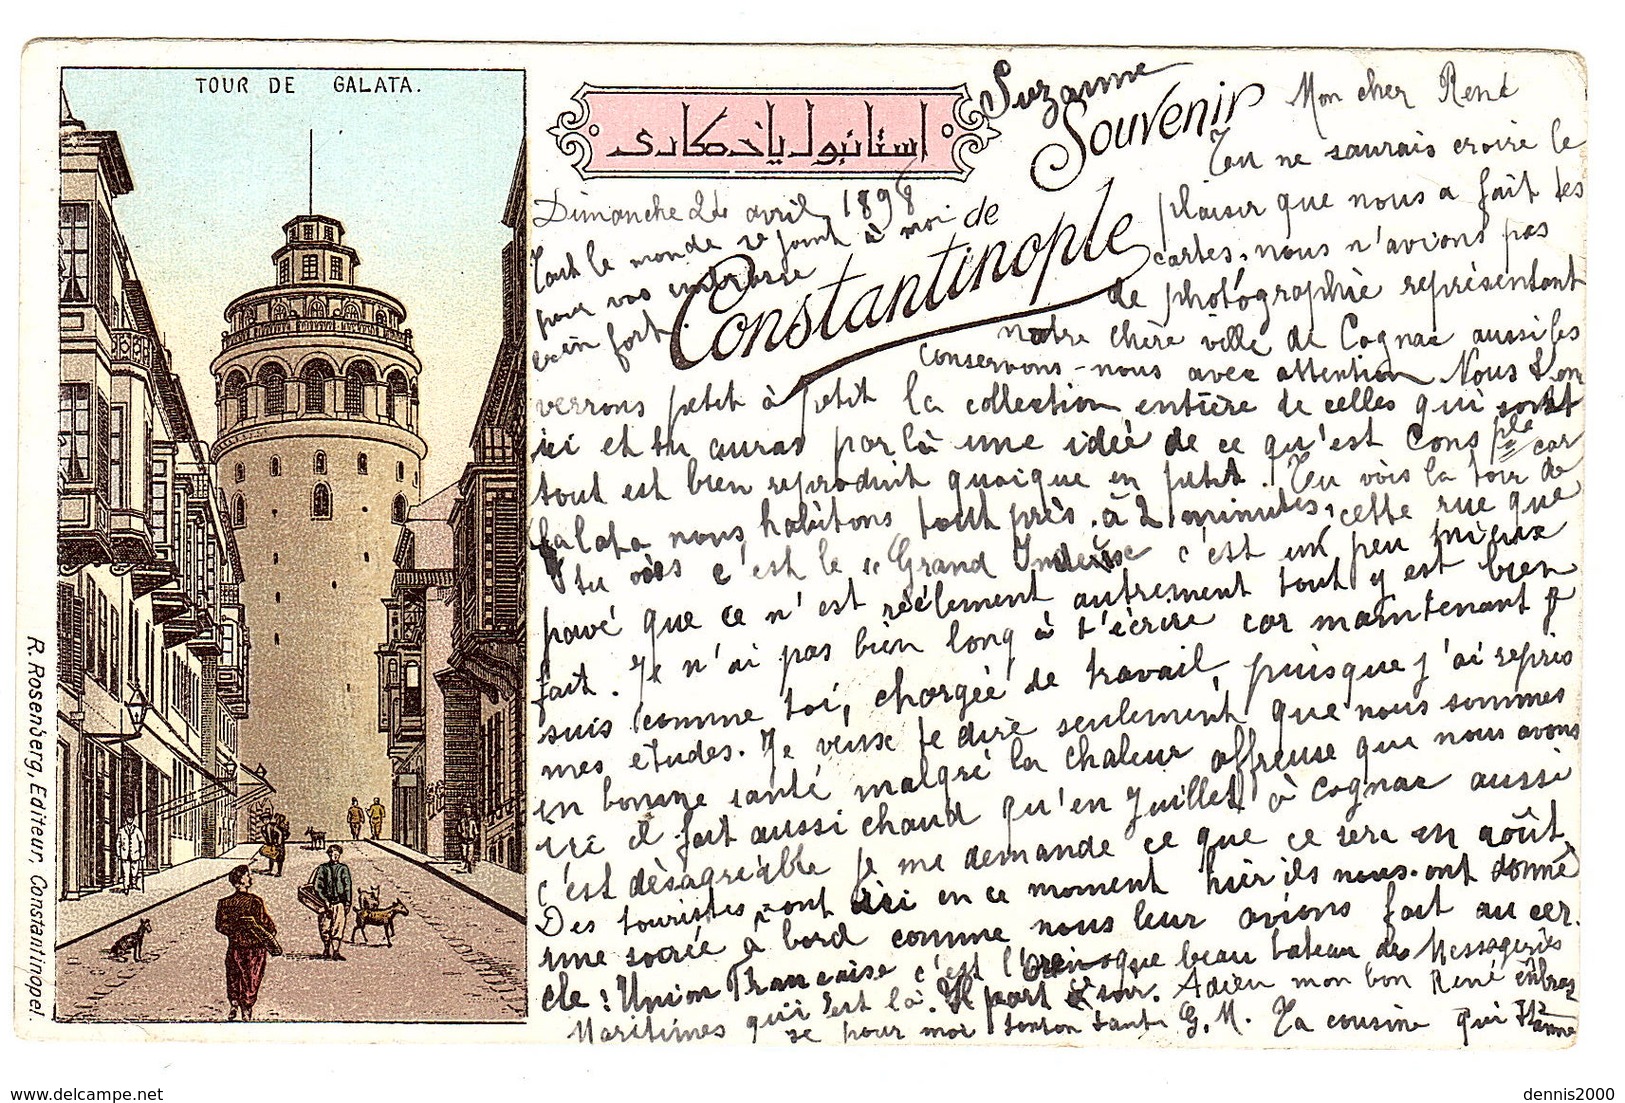 TOUR DE GALATA.
استانبول يادكارى
Suzanne
Souvenir de Constantinople
R. Rosenberg, Editeur, Constantinopel.
Dimanche 24 avril 1898
Tout le monde se joint à moi
pour vos embrasse
bien fort.
Mon cher René
Tu ne saurais croire le
plaisir que nous a fait tes
cartes, nous n'avions pas
de photographie représentant
notre chère ville de Cognac aussi les
conservons-nous avec attention. Nous t'en
verrons petit à petit la collection entière de celles qui sont
ici et tu auras par là une idée de ce qu'est Consple car
tout est bien reproduit quoique en petit. Tu vois la tour de
Galata nous habitons tout près à 2 minutes, cette rue que
tu vois c'est le "Grand c'est un peu mieux
pavé que ce n'est réelement autrement tout y est bien
fait. Je n'ai pas bien long à t'écrire car maintenant je
suis comme toi, chargée de travail, puisque j'ai repris
mes études. Je veux te dire seulement que nous sommes
en bonne santé malgré la chaleur affreuse que nous avons
ici il fait aussi chaud qu'en Juillet à Cognac aussi
c'est désagréable je me demande ce que ce sera en août.
Des touristes sont ici en ce moment hier ils nous ont donné
une soirée à bord comme nous leur avions fait au cer
cle: Union Francaise c'est l'Orénoque beau bateau des Messageries
Maritimes qui est là. Il part ce soir. Adieu mon bon René embras
se pour moi tonton tante G. M. Ta cousine qui t'aime
dennis2000